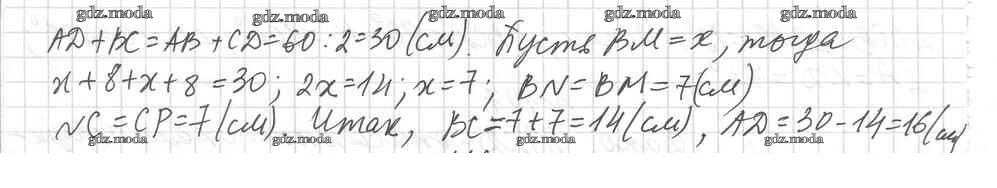 gdz.moda gdz.moda gdz.moda gdz.moda gdz.moda
AD+BC=AB+CD=60:2=30(см). Пусть BM=x, тогда
x+8+x+8=30; 2x=14; x=7; BN=BM=7(см)
NC=CP=7(см). Итак, BC=7+7=14(см), AD=30-14=16(см)
gdz.moda gdz.moda gdz.moda gdz.moda gdz.moda